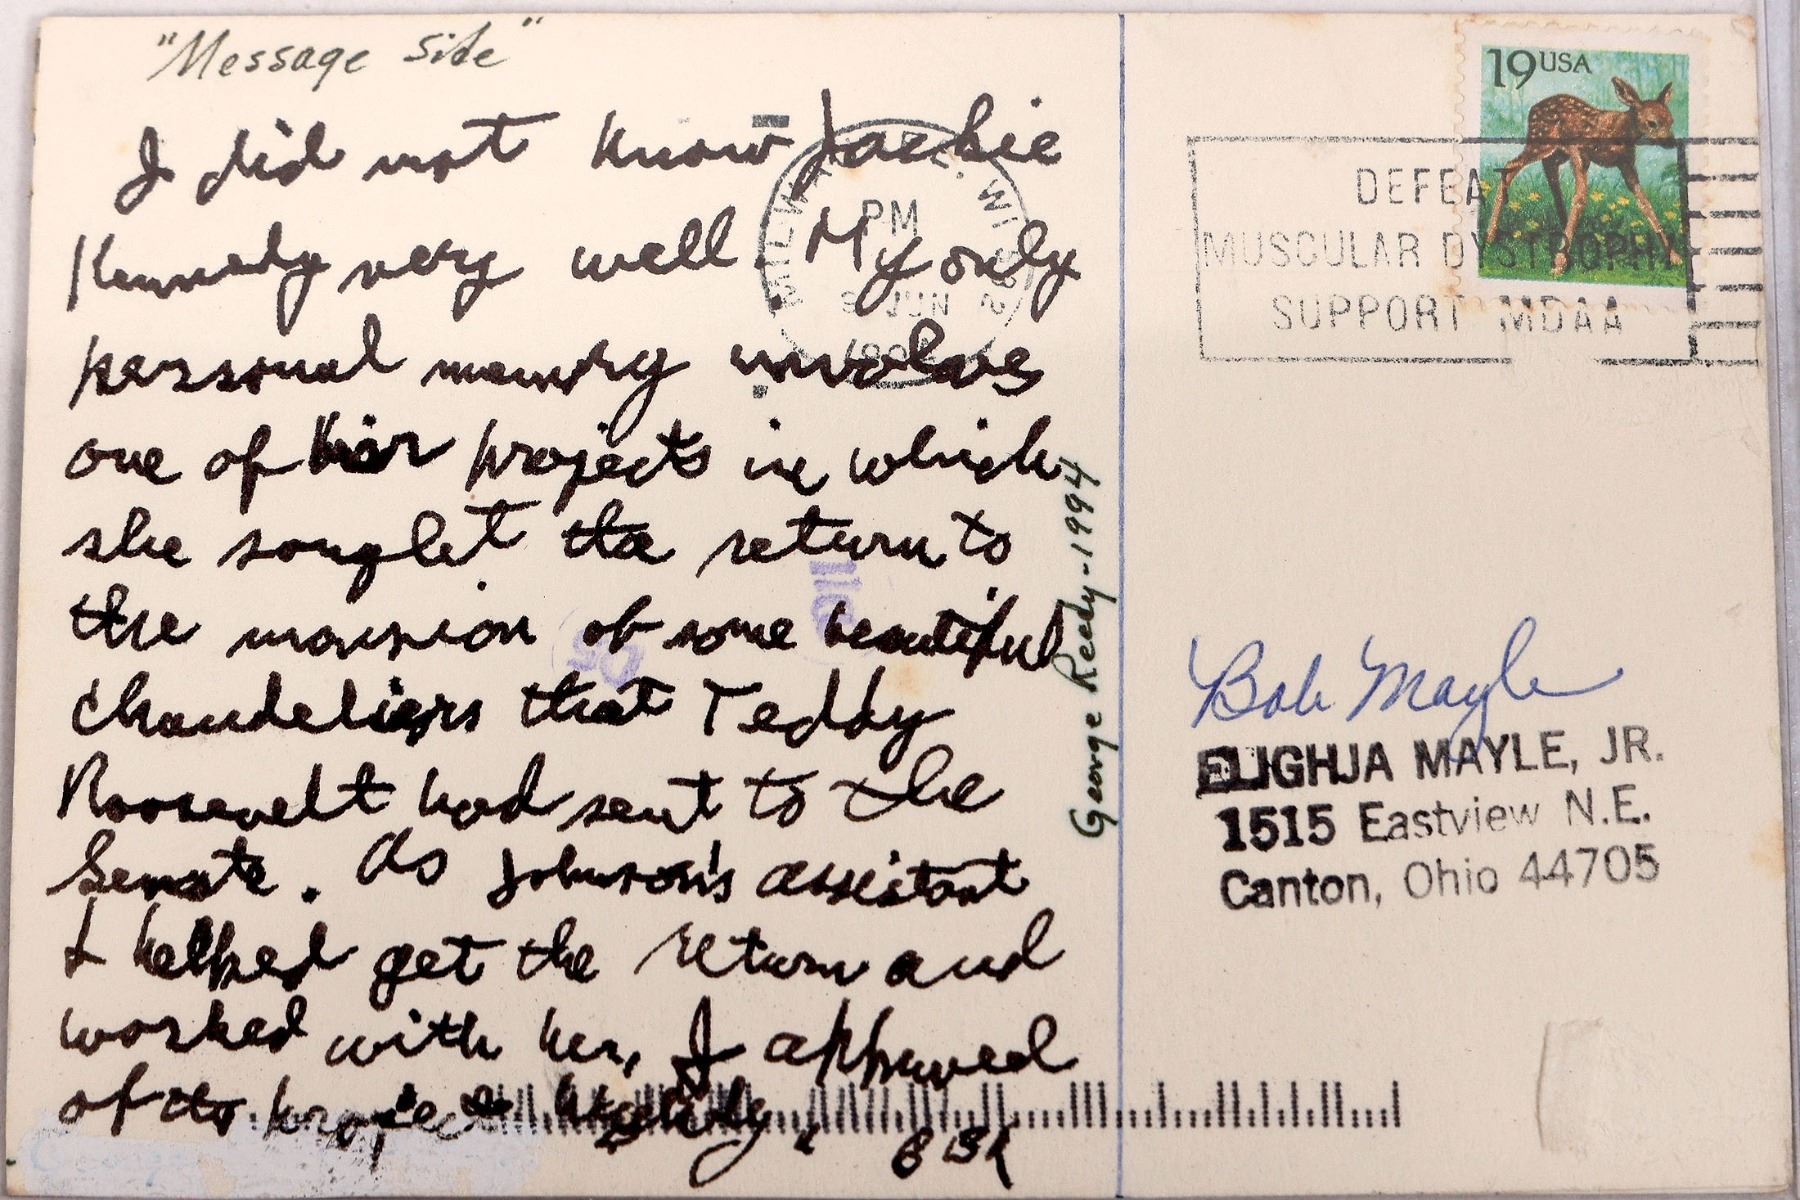 "Message Side"
I did not know Jackie
Kennedy very well. My only
personal memory involves
one of her projects in which
she sought the return to
the mansion of some beautiful
chandeliers that Teddy
Roosevelt had sent to the
Senate. As Johnson's assistant
I helped get the return and
worked with her, I approved
of the project highly.
George Reedy-1994
19USA
PM
JUN
DEFEAT
MUSCULAR DYSTROPHY
SUPPORT MDAA
Bob Mayle
ELIGHJA MAYLE, JR.
1515 Eastview N.E.
Canton, Ohio 44705